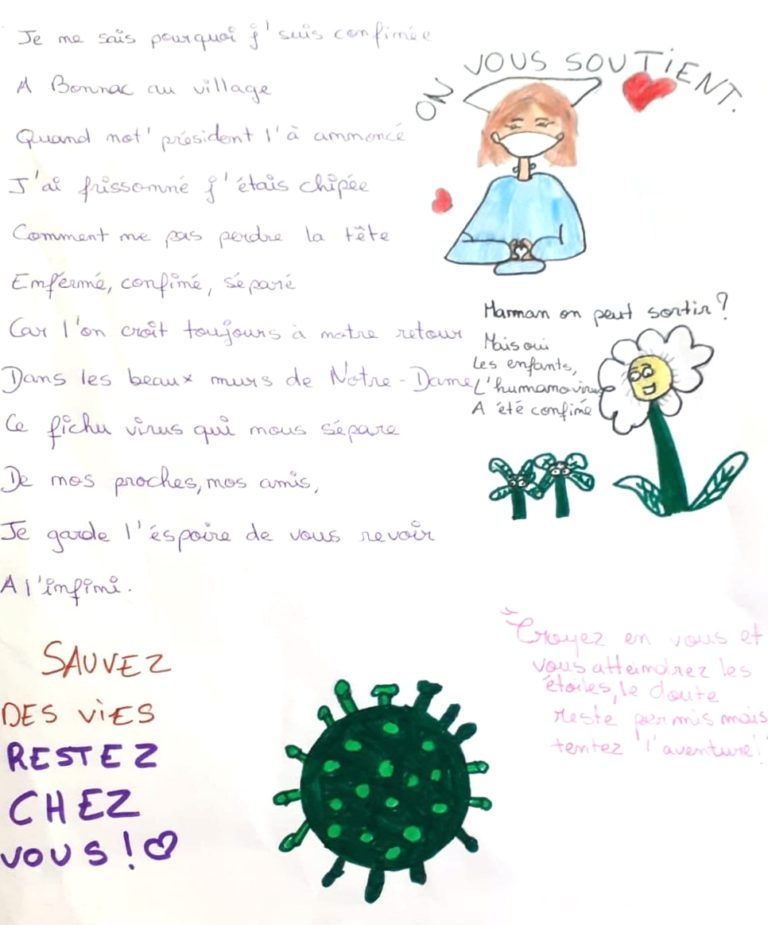 Je ne sais pourquoi j'suis confinée
A Bonnac au village
Quand not' président l'à annoncé
J'ai frissonné j'étais chipée
Comment ne pas perdre la tête
Enfermé, confiné, séparé
Car l'on croit toujours à notre retour
Dans les beaux murs de Notre-Dame
Ce fichu virus qui nous sépare
De nos proches, nos amis,
Je garde l'éspoire de vous revoir
A l'infini.
ON VOUS SOUTIENT.
Maman on peut sortir?
Mais oui
Les enfants,
L'humanovirus
A été confiné
SAUVEZ
DES VIES
RESTEZ
CHEZ
VOUS!
Croyez en vous et
vous atteindrez les
étoiles, le doute
reste permis mais
tentez l'aventure!